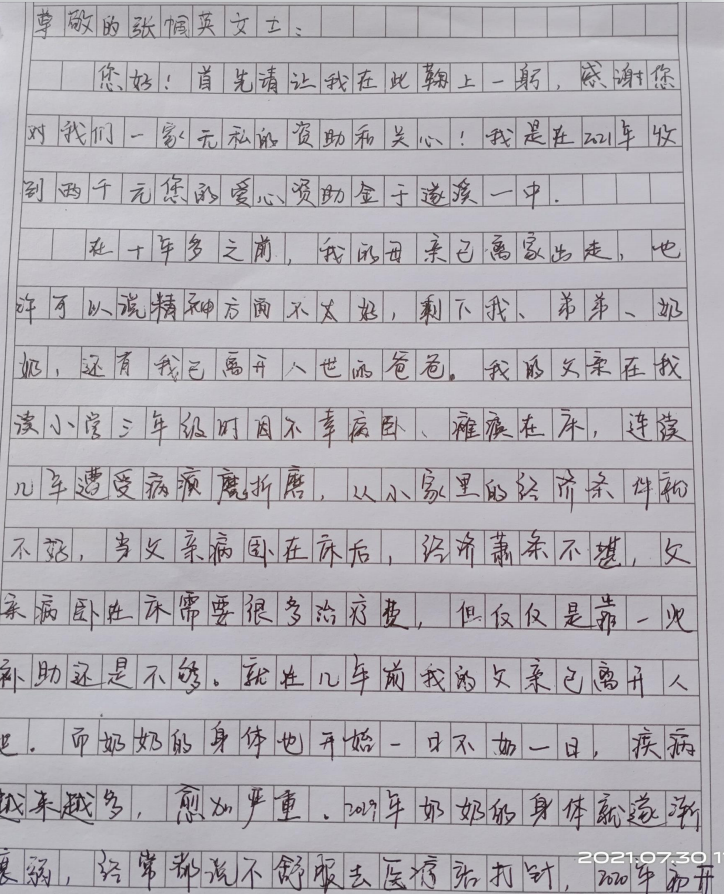 尊敬的张帼英女士：
您好！首先请让我在此鞠上一躬，感谢您
对我们一家无私的资助和关心！我是在2021年收
到两千元您的爱心资助金于遂溪一中.
在十年多之前，我的母亲已离家出走，也
许可以说精神方面不太好，剩下我、弟弟、奶
奶，还有我已离开人世的爸爸。我的父亲在我
读小学三年级时因不幸病卧、瘫痪在床，连续
几年遭受病痪磨折磨，从小家里的经济条件就
不好，当父亲病卧在床后，经济萧条不堪，父
亲病卧在床需要很多治疗费，但仅仅是靠一些
补助还是不够。就在几年前我的父亲已离开人
世.而奶奶的身体也开始一日不如一日，疾病
越来越多，愈加严重.2019年奶奶的身体就逐渐
衰弱，经常都说不舒服去医疗站打针，2020年初开
2021.07.30 1